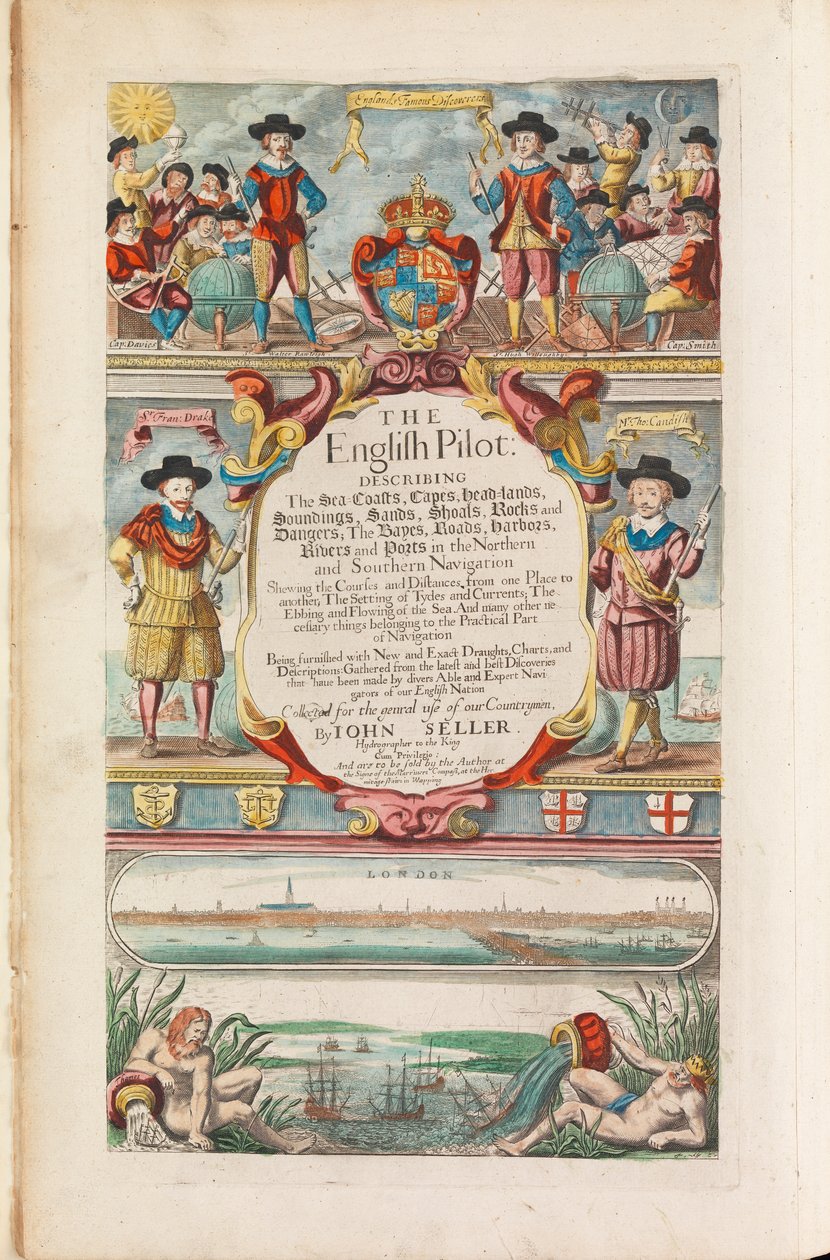 Englands Famous Discoverers
Cap: Davies
Sr. Walter Rawleigh
Sr. Hugh Willoughby
Cap: Smith
Sr. Fran: Drake
Mr. Tho: Candish
THE
Engliſh Pilot:
DESCRIBING
The Sea-Coaſts, Capes, Head-lands,
Soundings, Sands, Shoals, Rocks and
Dangers; The Bayes, Roads, Harbors,
Rivers and Ports in the Northern
and Southern Navigation
Shewing the Courſes and Diſtances from one Place to
another, The Setting of Tydes and Currents; The
Ebbing and Flowing of the Sea. And many other ne
ceſſary things belonging to the Practical Part
of Navigation
Being furniſhed with New and Exact Draughts, Charts, and
Deſcriptions: Gathered from the lateſt and beſt Diſcoveries
that have been made by divers Able and Expert Navi
gators of our Engliſh Nation
Collected for the genral uſe of our Countrymen,
By IOHN SELLER.
Hydrographer to the King
Cum Privilegio:
And are to be ſold by the Author at
the Signe of the Marriners Compaſs, at the Her
mitage ſtairs in Wapping
LONDON